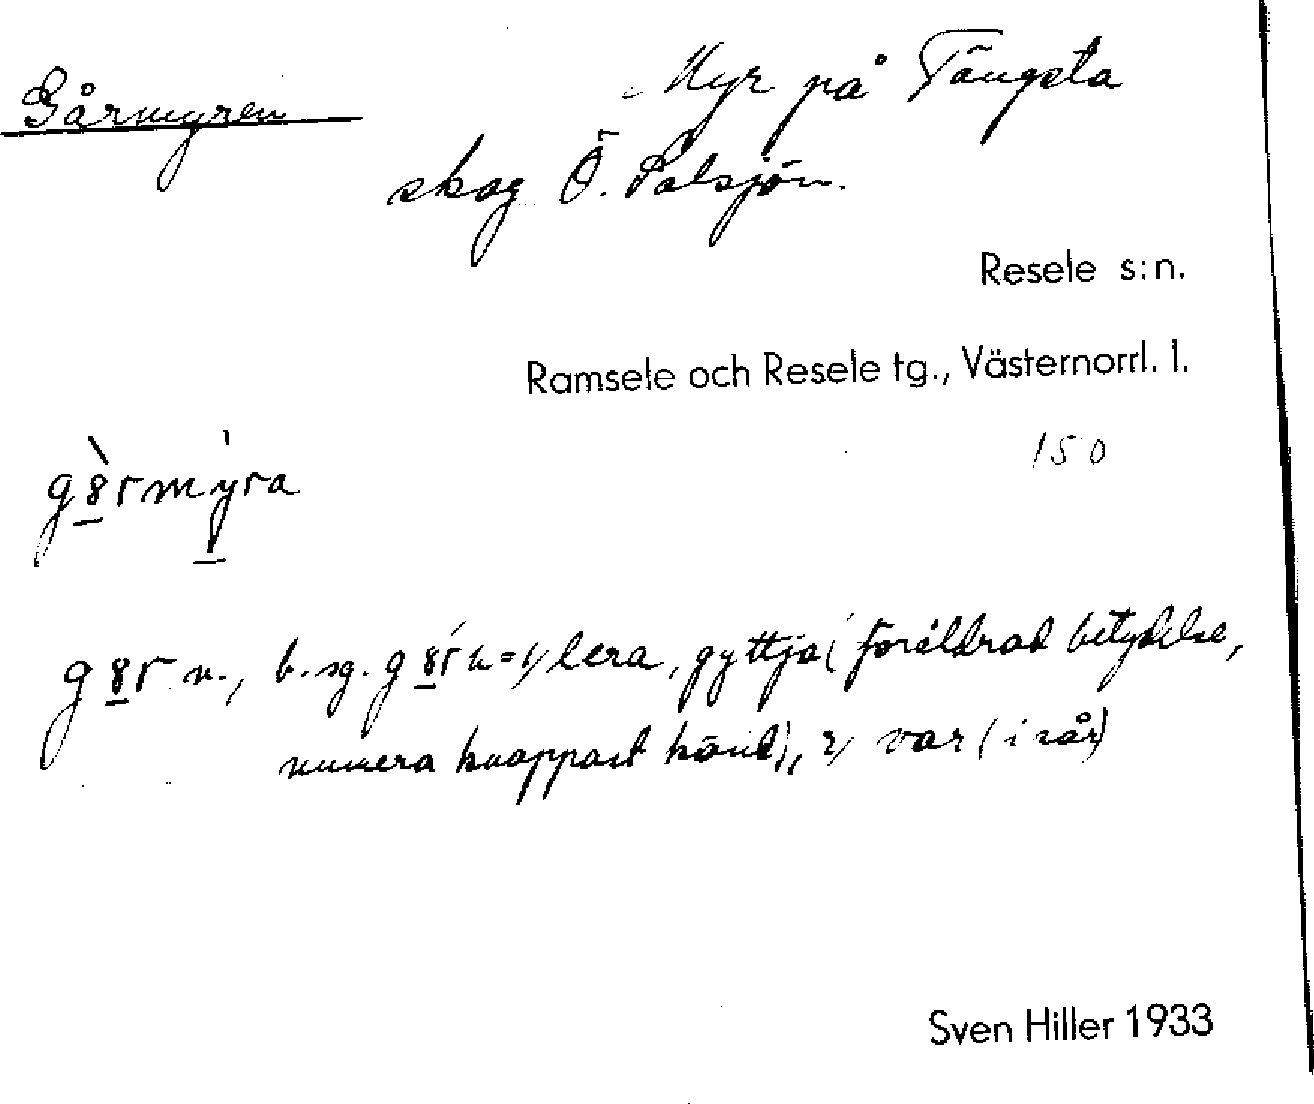 Gårmyren
Myr på Tängsta
skog Ö. Palsjön.
Resele s:n.
Ramsele och Resele tg., Västernorrl. l.
150
gå̀rmy̍ra
går n., b. sg. gårn = 1/ lera, gyttja (föråldrad betydelse,
numera knappast känd), 2/ var (i sår)
Sven Hiller 1933